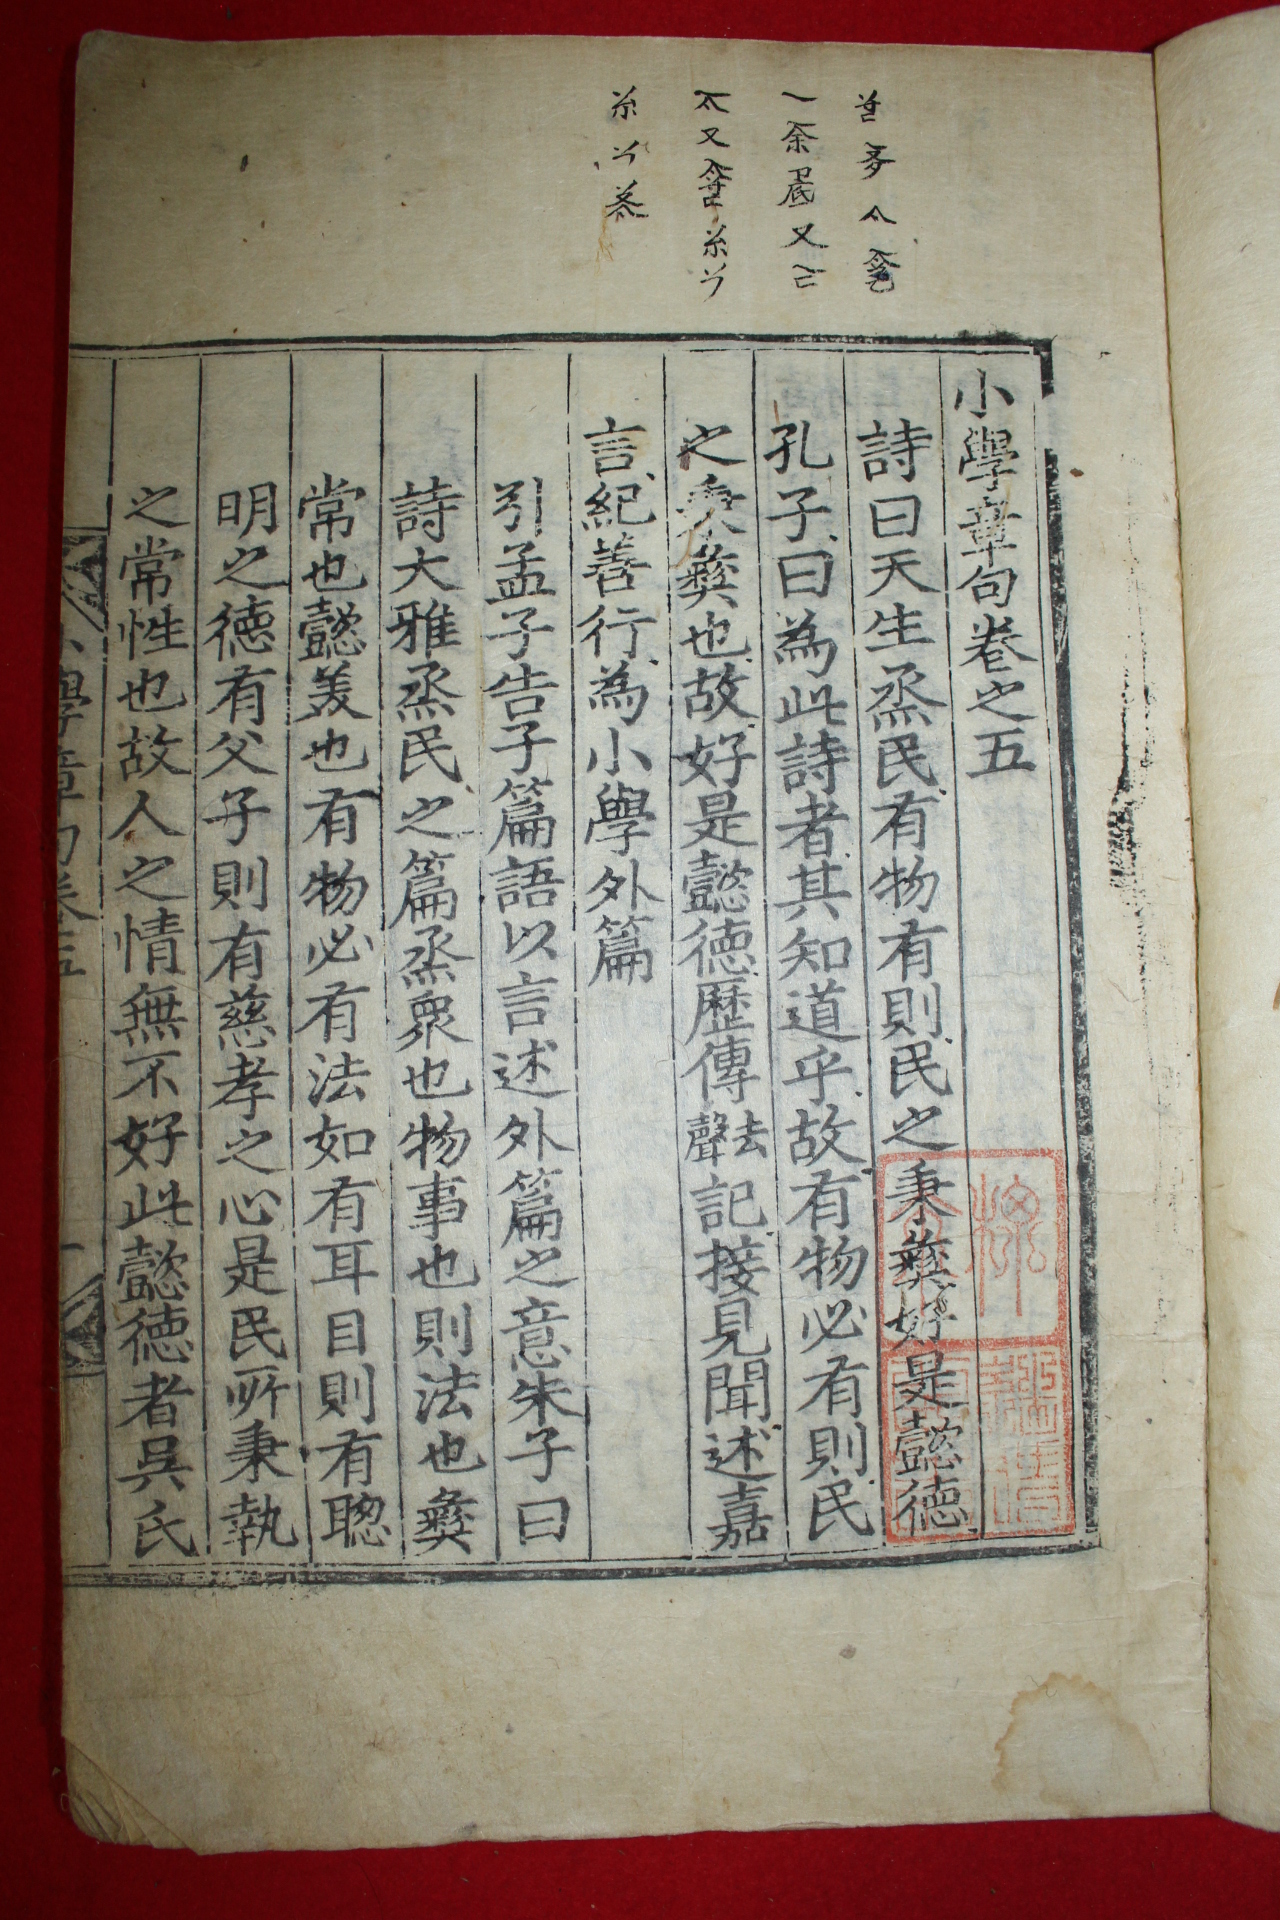 小學章句卷之五
詩曰天生烝民有物有則民之秉彝好是懿德
孔子曰為此詩者其知道乎故有物必有則民
之秉彝也故好是懿德歷傳去聲記接見聞述嘉
言紀善行為小學外篇
引孟子告子篇語以言述外篇之意朱子曰
詩大雅烝民之篇烝衆也物事也則法也彝
常也懿美也有物必有法如有耳目則有聰
明之德有父子則有慈孝之心是民所秉執
之常性也故人之情無不好此懿德者吳氏
小學章句卷五
一